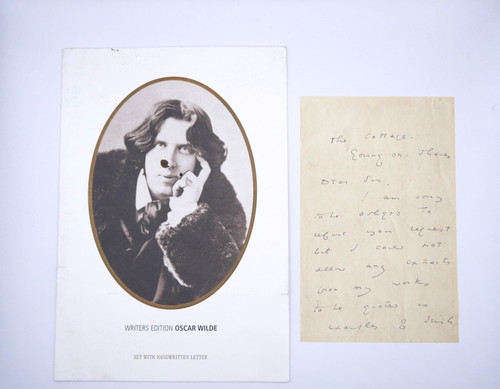 WRITERS EDITION OSCAR WILDE
SET WITH HANDWRITTEN LETTER
The Cottage.
Goring on. Thames
Dear Sir.
I am sorry
to be obliged to
refuse your request
but I could not
allow any extracts
from my works
to be quoted as
examples of